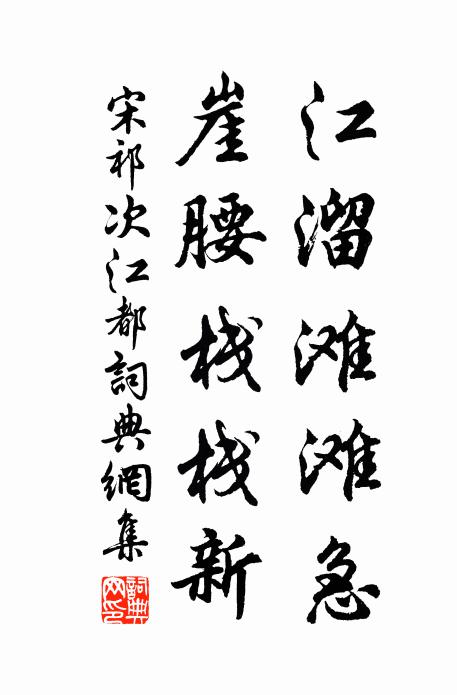 江溜滩滩急
崖腰栈栈新
宋祁次江都詞典網集
詞典网印